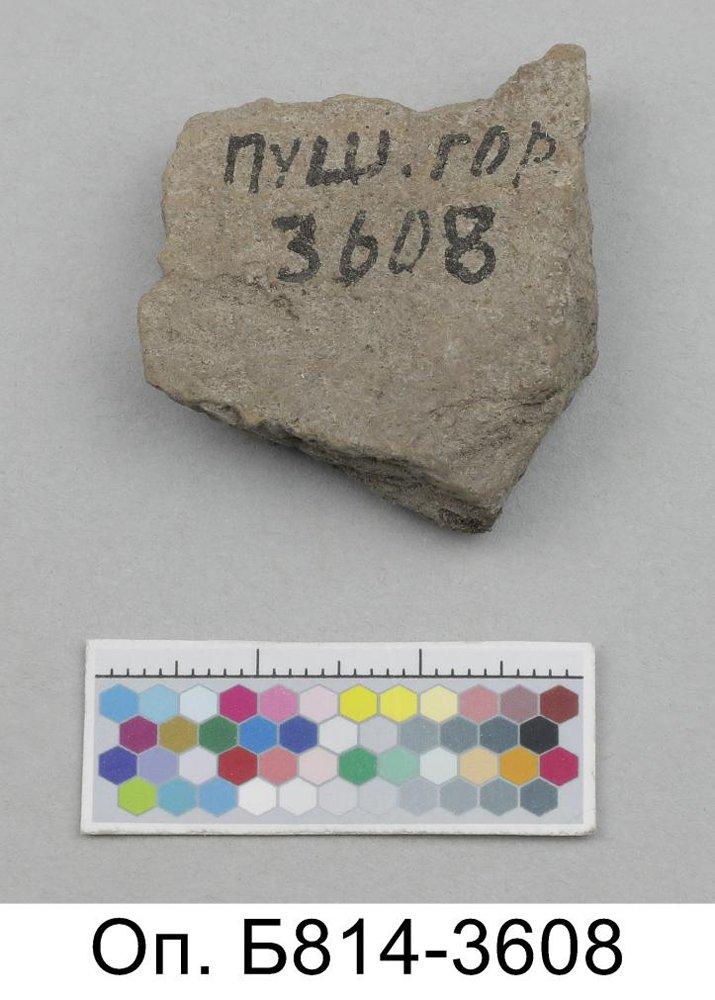 ПУШ.ГОР
3608
Оп. Б814-3608